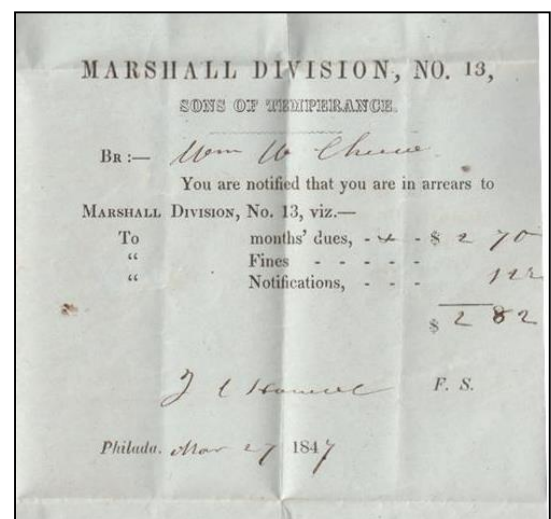 MARSHALL DIVISION, NO. 13,
SONS OF TEMPERANCE.
BR :— Wm W
You are notified that you are in arrears to
MARSHALL DIVISION, No. 13, viz.—
To months' dues, - - - $ 2 70
“ Fines - - - - -
“ Notifications, - - - 12
$ 2 82
F. S.
Philada. Mar 27 1847